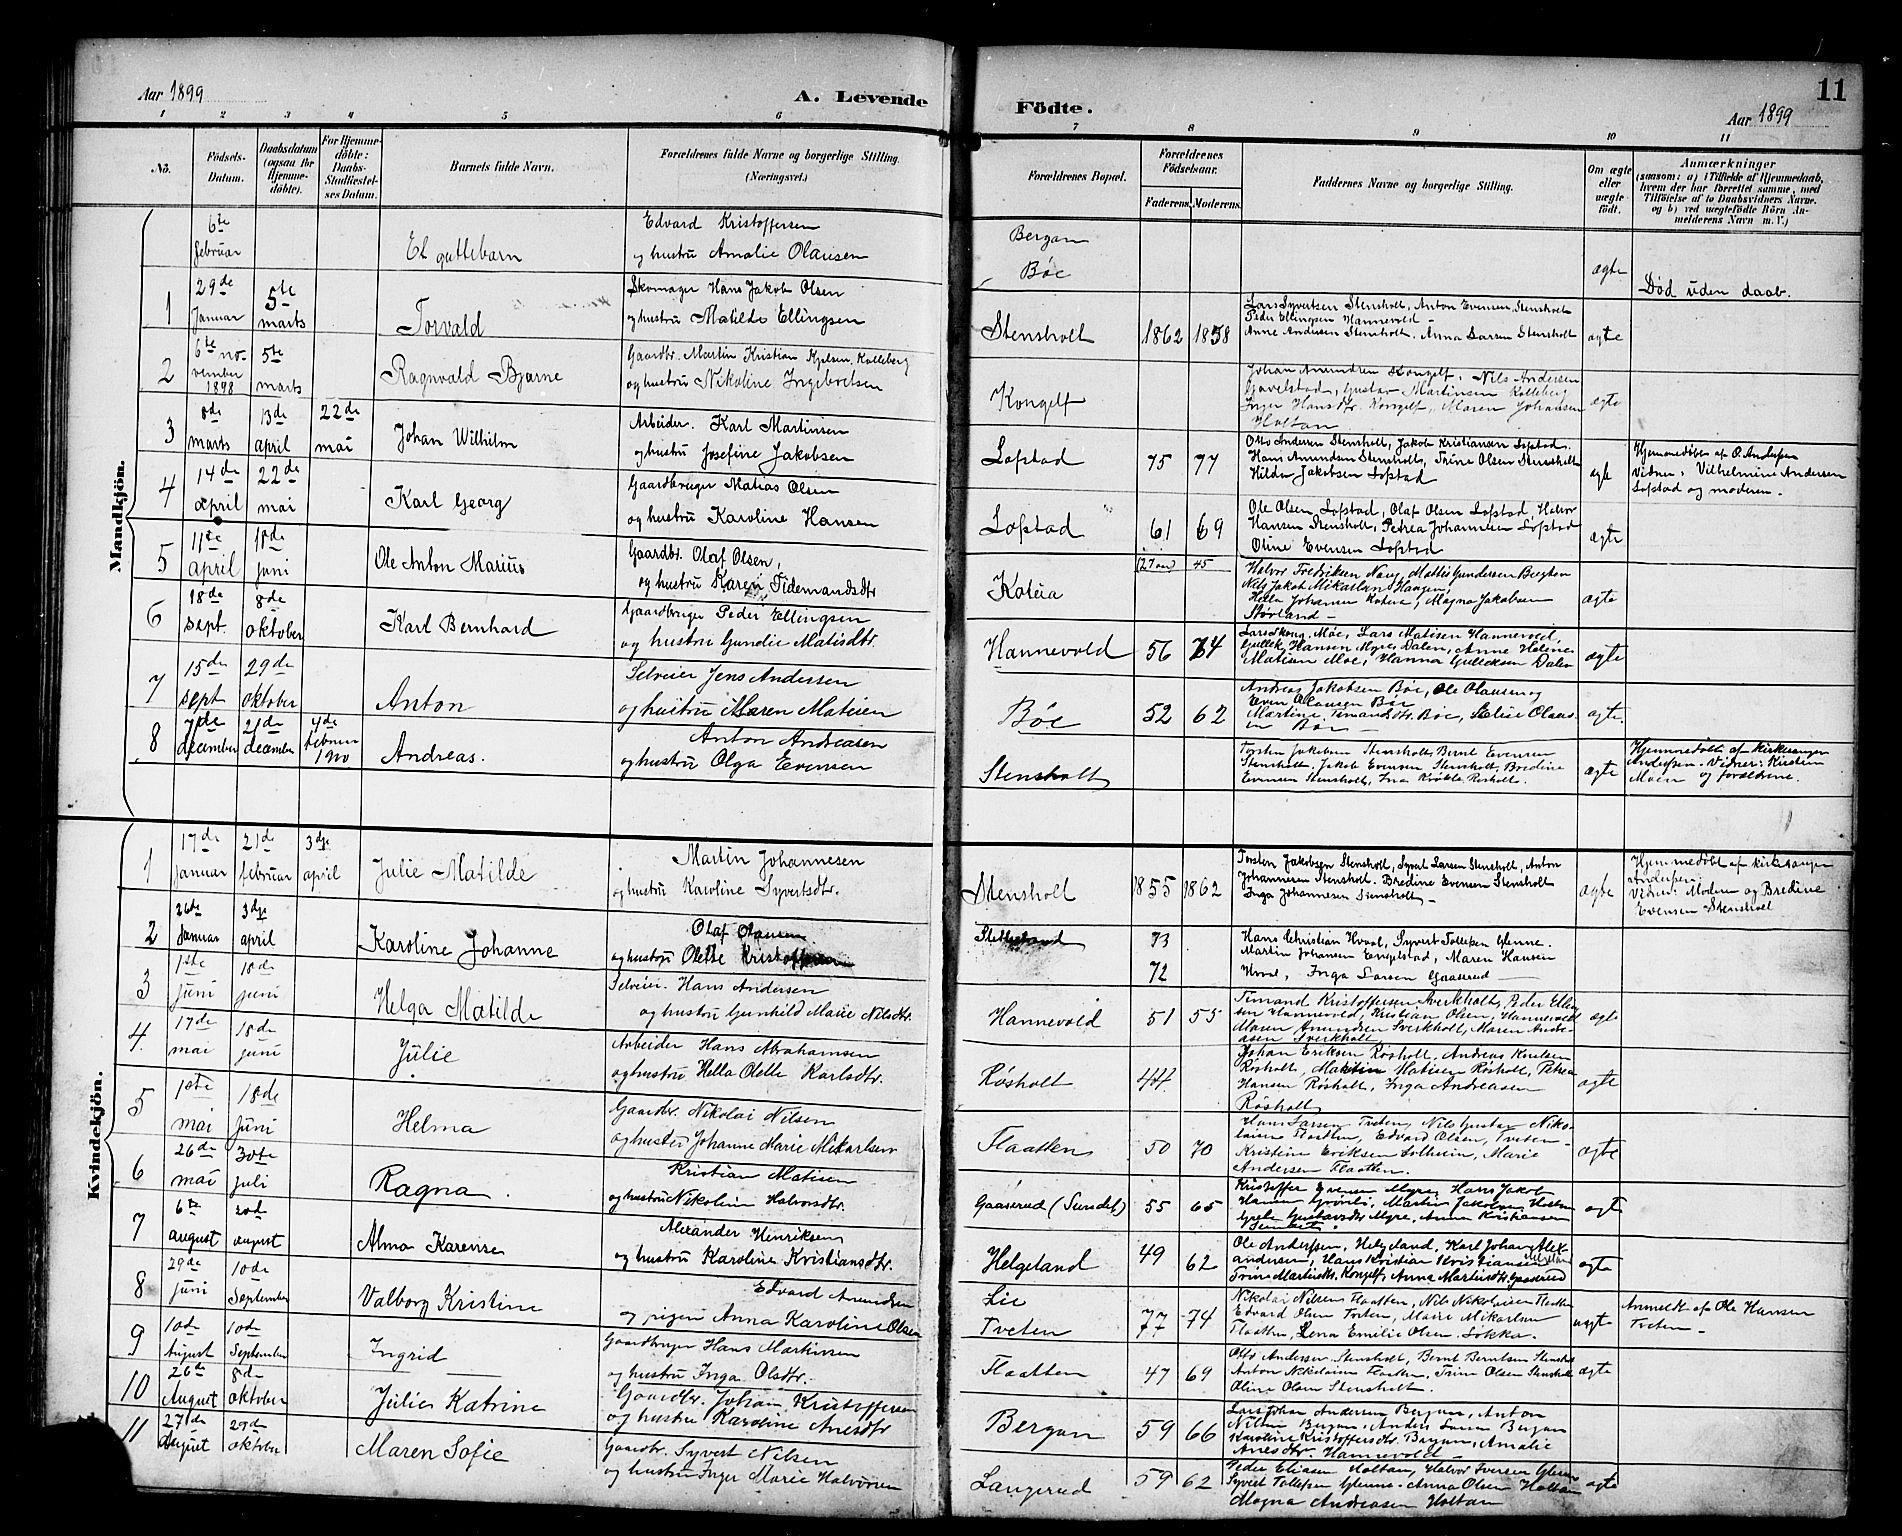 Aar 1899
A. Levende Födte.
11
Aar 1899
1 2 3 4 5 6 7 8 9 10 11
No.
Födsels-Datum.
Daabsdatum (ogsaa for Hjemmedöbte).
For Hjemmedöbte: Daabs-Stadfæstelses Datum.
Barnets fulde Navn.
Forældrenes fulde Navne og borgerlige Stilling.
(Næringsvei.)
Forældrenes Bopæl.
Forældrenes Födselsaar.
Faderens. Moderens.
Faddernes Navne og borgerlige Stilling.
Om ægte eller uægte födt.
Anmærkninger
(saasom: a) i Tilfælde af Hjemmedaab,
hvem der har forrettet samme, med
Tilföielse af to Daabsvidners Navne,
og b) ved uægtefödte Börn Anmelderens Navn m. V.)
Mandkjön.
6te februar
Et guttebarn
Edvard Kristoffersen
og hustru Amalie Olausen
Bergan
Bøe
ægte
Død uden daab.
1
29de Januar
5te marts
Torvald
Skomager Hans Jakob Olsen
og hustru Matilde Ellingsen
Stensholt
1862 1858
Lars Syvertsen Stensholt, Anton Evensen Stensholt
Peder Ellingsen Hannevold
Anne Andersen Stensholt, Anna Larsen Stensholt
ægte
2
6te november 1898
5te marts
Ragnvald Bjarne
Gaardbr. Martin Kristian Kjelsen Kolleberg
og hustru Nikoline Ingebretsen
Kongelf
Johan Amundsen Kongelf, Nils Andersen
Gavelstad, Gustav Martinsen Kolleberg
Inger Hansdtr. Kongelf, Maren Johansen
Holtan
ægte
3
8de marts
13de april
22de mai
Johan Wilhelm
Arbeider. Karl Martinsen
og hustru Josefine Jakobsen
Lofstad
75 77
Otto Andersen Stensholt, Jakob Kristiansen Lofstad.
Hans Amundsen Stensholt, Trine Olsen Stensholt
Hilda Jakobsen Lofstad
ægte
Hjemmedøbt af O. Andersen
Vidner: Vilhelmine Andersen
Lofstad og moderen.
4
14de april
22de mai
Karl Georg
Gaardbruger Matias Olsen
og hustru Karoline Hansen
Lofstad
61 69
Ole Olsen Lofstad, Olaf Olsen Lofstad, Halvor
Hansen Stensholt, Petrea Johannesen Lofstad
Oline Evensen Lofstad
ægte
5
11te april
18de juni
Ole Anton Marius
Gaardbr. Olaf Olsen,
og hustru Karen Tidemandsdtr
Koteia
45
Halvor Fredriksen Nav, Mattis Gundersen Bergan
Nils Jakob Mikarlsen Haugen,
Hella Johansen Koteia, Magna Jakobsen
Størland
ægte
6
18de sept.
8de oktober
Karl Bernhard
Gaardbruger Peder Ellingsen
og hustru Gundie Matisdtr.
Hannevold
56 64
Lars Skoug Moe, Lars Matisen Hannevold,
Gullek Hansen Myre Dalen, Anne Helene
Matisen Moe, Hanna Gulleksen Dalen
ægte
7
15de sept
29de oktober
Anton
Selveier Jens Andersen
og hustru Maren Matisen
Bøe
52 62
Andreas Jakobsen Bøe, Ole Olausen og
Even Olausen Bøe
ægte.
8
7de december
21de december
4de februar 1900
Andreas.
Anton Andreasen
og hustru Olga Evensen
Stensholt
Torsten Jakobsen Stensholt, Bernt Evensen
Stensholt, Jakob Evensen Stensholt, Bredine
Evensen Stensholt, Ina Røsholt.
ægte
Hjemmedøbt af kirkesanger
Andersen. Vidner: Kirsten
Moen og forældrene.
Kvindekjön.
1
17de Januar
21de februar
3die april
Julie Matilde
Martin Johannesen
og hustru Karoline Syvertsdtr.
Stensholt
1855 1862
Torsten Jakobsen Stensholt, Syvert Larsen Stensholt, Anton
Johannesen Stensholt. Bredine Evensen Stensholt
Inga Johannesen Stensholt
ægte
Hjemmedøbt af kirkesanger
Andersen.
Vidner: Moderen og Bredine
Evensen Stensholt
2
26de Januar
3die april
Karoline Johanne
Olaf Olausen
og hustru Olette Kristoffersen
73
72
Hans Christian Hvaal, Syvert Tollefsen Glenne.
Martin Johansen Engelstad, Maren Hansen
Hvaal, Inga Larsen Gaaserud
3
1ste juni
18de juni
Helga Matilde
Selveier. Hans Andersen
og hustru Gunhild Marie Nilsdtr.
Hannevold
51 55
Timand Kristoffersen Sverkholt, Peder Ellingsen Hannevold, Kristian Olsen, Hannevold
Maren Amundsen Sverkholt, Maren Andreasen Sverkholt
ægte
4.
17de mai
18de juni
Julie
Arbeider Hans Abrahamsen
og hustru Hella Olette Karlsdtr.
Røsholt
44
Johan Eriksen Røsholt, Andreas Knudsen
Røsholt, Martin Matisen Røsholt, Petrea
Hansen Røsholt, Inga Andreasen
Røsholt
ægte
5
1ste mai
18de Juni
Helma
Gaardbr. Nikolai Nilsen
og hustru Johanne Marie Mikarlsen
Flaatten
50 70
Hans Larsen Tveten, Nils Gustav Nikolaisen Flaatten, Edvard Olsen, Tveten
Kristine Eriksen Solheim, Marie
Andersen Flaatten.
ægte
6
26de mai
30te juli
Ragna.
Kristian Matisen
og hustru Nikoline Halvorsdtr.
Gaaserud (Sundet)
55 65
Kristoffer Iversen Myre, Hans Jakob
Hansen, Martin Jakobsen
Gustavsdtr Myre, Anna Kristiansen
Sundet.
ægte
7
6te august
20de august
Alma Karense
Alexander Henriksen
og hustru Karoline Kristiansdtr.
Helgeland
49 62
Ole Anderssen, Helgeland, Karl Johan Alexandersen, Hans Kristian Kristiansen
Trine Martinsdtr. Kongelf, Anna Martinsdtr. Gaaserud
ægte
8
29de juni
10de September
Valborg Kristine
Edvard Amundsen
og pigen Anna Karoline Olsen
Lie
Tveten
77 74
Nikolai Nilsen Flaatten, Nils Nikolaisen Flaatten
Edvard Olsen Tveten, Marie Mikarlsen
Flaatten, Lena Emilie Olsen Løkka.
uægte
Anmeldt af Ole Hansen
Tveten
9
10de August
10de September
Ingrid
Gaardbruger Hans Martinsen
og hustru Inga Olsdtr.
Flaatten
47 69
Otto Andersen Stensholt, Bernt Berntsen Stensholt
Anton Nikolaisen Flaatten, Trine Olsen Stensholt
Oline Olsen Stensholt.
ægte
10
26de August
8de oktober
Julie Katrine
Gaardbr. Johan Kristoffersen
og hustru Karoline Anesdtr
Bergan
59 66
Lars Johan Andersen Bergan, Anton
Nilsen Bergan, Anders Larsen Bergan
Karoline Kristoffersdtr. Bergan, Amalie
Anesdtr Hannevold
11
27de August
29de oktober
Maren Sofie
Gaardbr. Syvert Nilsen
og hustru Inger Marie Halvorsen
Langerud
59 62
Peder Eliasen Holtan, Halvor Iversen Glenne
Syvert Tollefsen Glenne. Anna Olsen Holtan
Magna Andreasen Holtan
ægte